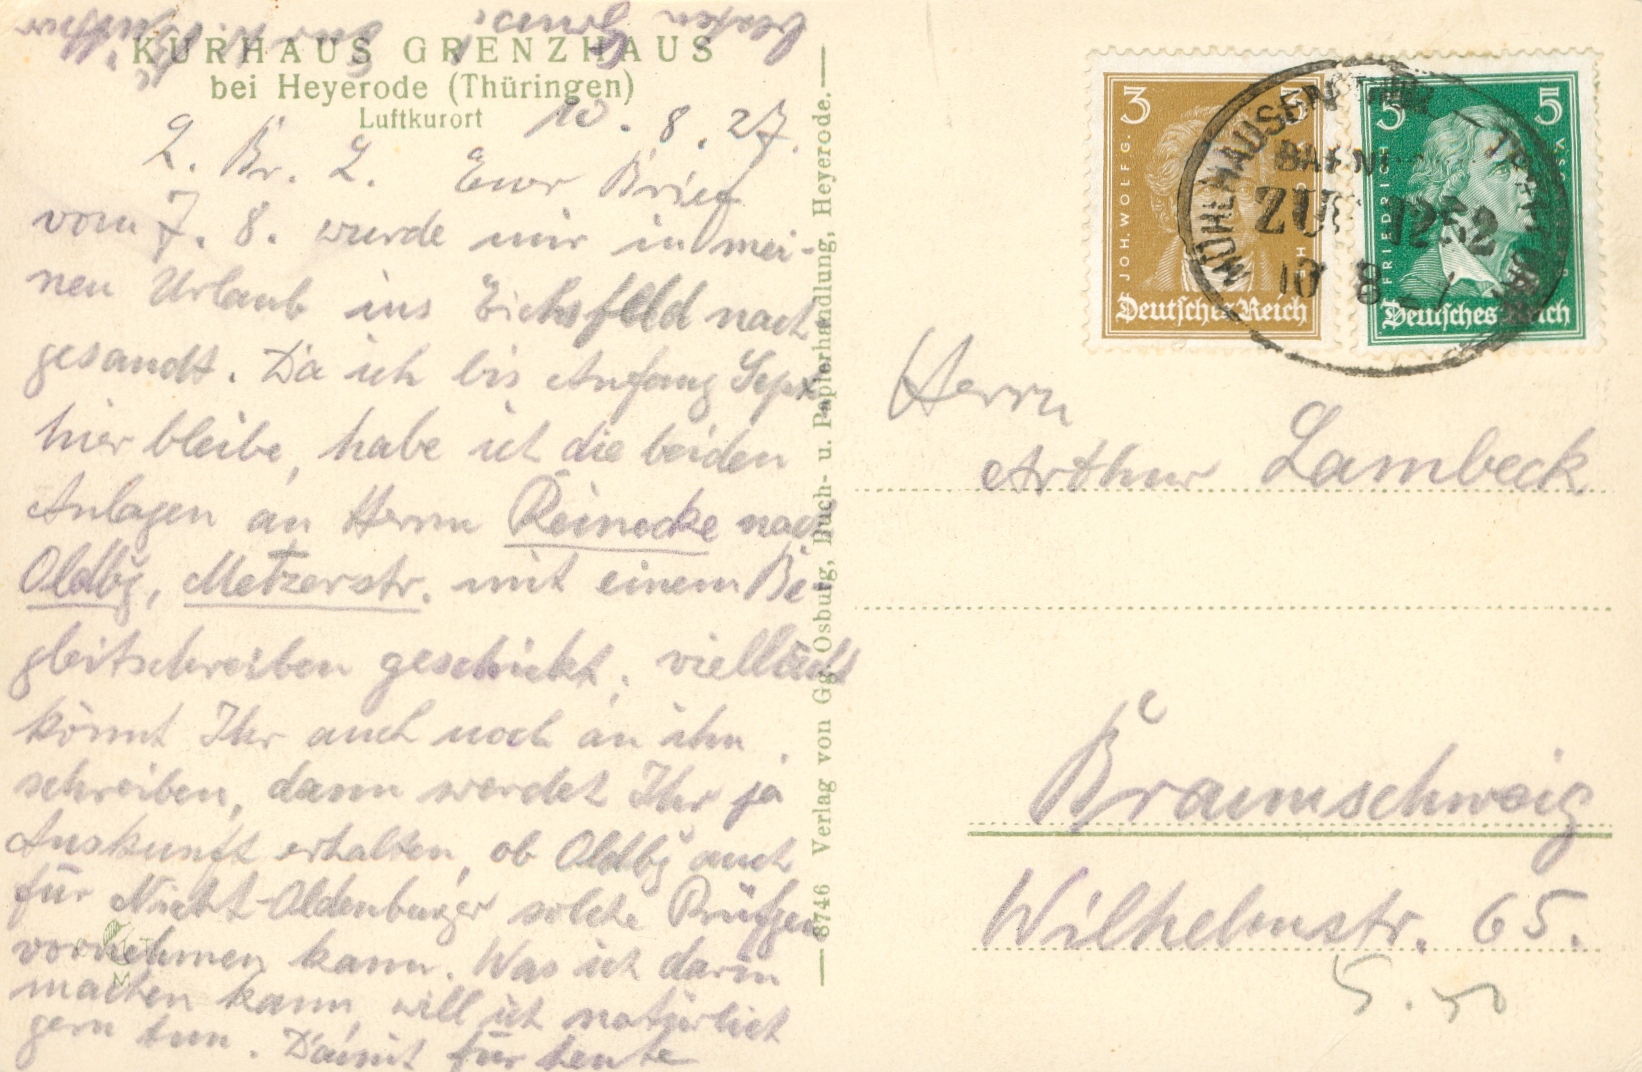 KURHAUS GRENZHAUS
bei Heyerode (Thüringen)
Luftkurort
10. 8. 27.
L. Br. L. Euer Brief
vom 7. 8. wurde mir in mei-
nen Urlaub ins Eichsfeld nach
gesandt. Da ich bis Anfang Sept
hier bleibe, habe ich die beiden
Anlagen an Herrn Reinecke nach
Oldbg, Metzerstr. mit einem Be-
gleitschreiben geschickt, vielleicht
könnt Ihr auch noch an ihn
schreiben, dann werdet Ihr ja
Auskunft erhalten, ob Oldbg auch
für Nicht-Oldenburger solche Prüfgen
vornehmen kann. Was ich darin
machen kann, will ich natürlich
gern tun. Damit für heute
besten Gruss
8746 Verlag von Gg. Osburg, Buch- u. Papierhandlung, Heyerode.
3 3
JOH. WOLFG.
Deutsches Reich
5 5
FRIEDRICH
Deutsches Reich
MÜHLHAUSEN
BAHNP
ZUG 1232
Herrn
Arthur Lambeck
Braunschweig
Wilhelmstr. 65.
5.50